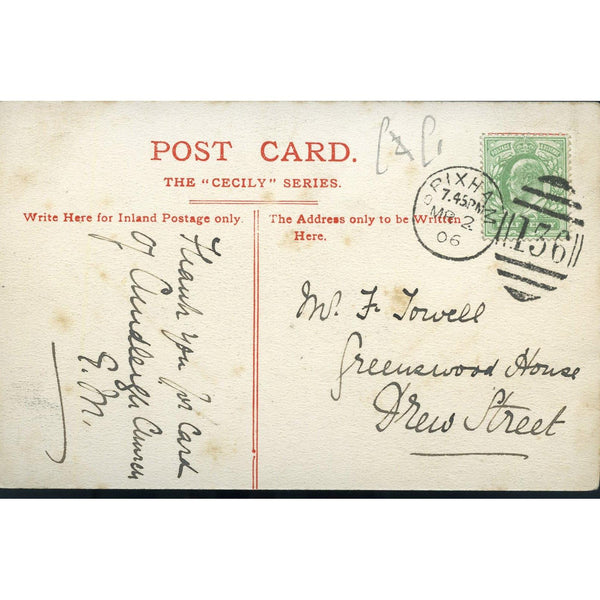 POST CARD.
THE "CECILY" SERIES.
Write Here for Inland Postage only.
The Address only to be Written
Here.
BRIXHAM
7.45PM
MR 2
06
136
Thank you for card
of Church
E. M.
Mr F. Towell
Greenswood House
Drew Street